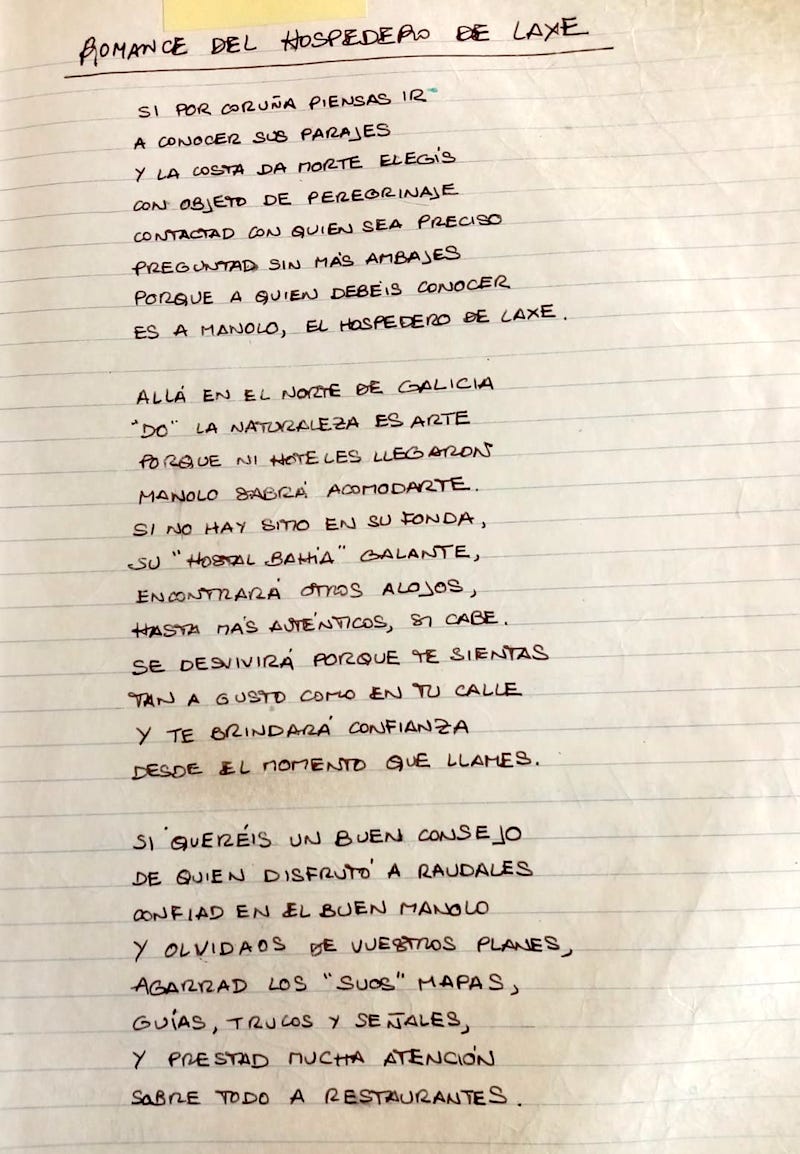 ROMANCE DEL HOSPEDERO DE LAXE
SI POR CORUÑA PIENSAS IR
A CONOCER SUS PARAJES
Y LA COSTA DA MORTE ELEGÍS
CON OBJETO DE PEREGRINAJE
CONTACTAD CON QUIEN SEA PRECISO
PREGUNTAD SIN MÁS AMBAJES
PORQUE A QUIEN DEBÉIS CONOCER
ES A MANOLO, EL HOSPEDERO DE LAXE.
ALLÁ EN EL NORTE DE GALICIA
"DO" LA NATURALEZA ES ARTE
PORQUE NI HOTELES LLEGARON
MANOLO SABRÁ ACOMODARTE.
SI NO HAY SITIO EN SU FONDA,
SU "HOSTAL BAHÍA" GALANTE,
ENCONTRARÁ OTROS ALOJOS,
HASTA MÁS AUTÉNTICOS, SI CABE.
SE DESVIVIRÁ PORQUE TE SIENTAS
TAN A GUSTO COMO EN TU CALLE
Y TE BRINDARÁ CONFIANZA
DESDE EL MOMENTO QUE LLAMES.
SI QUERÉIS UN BUEN CONSEJO
DE QUIEN DISFRUTÓ A RAUDALES
CONFIAD EN EL BUEN MANOLO
Y OLVIDAOS DE VUESTROS PLANES,
AGARRAD LOS "SUOS" MAPAS,
GUÍAS, TRUCOS Y SEÑALES,
Y PRESTAD MUCHA ATENCIÓN
SOBRE TODO A RESTAURANTES.